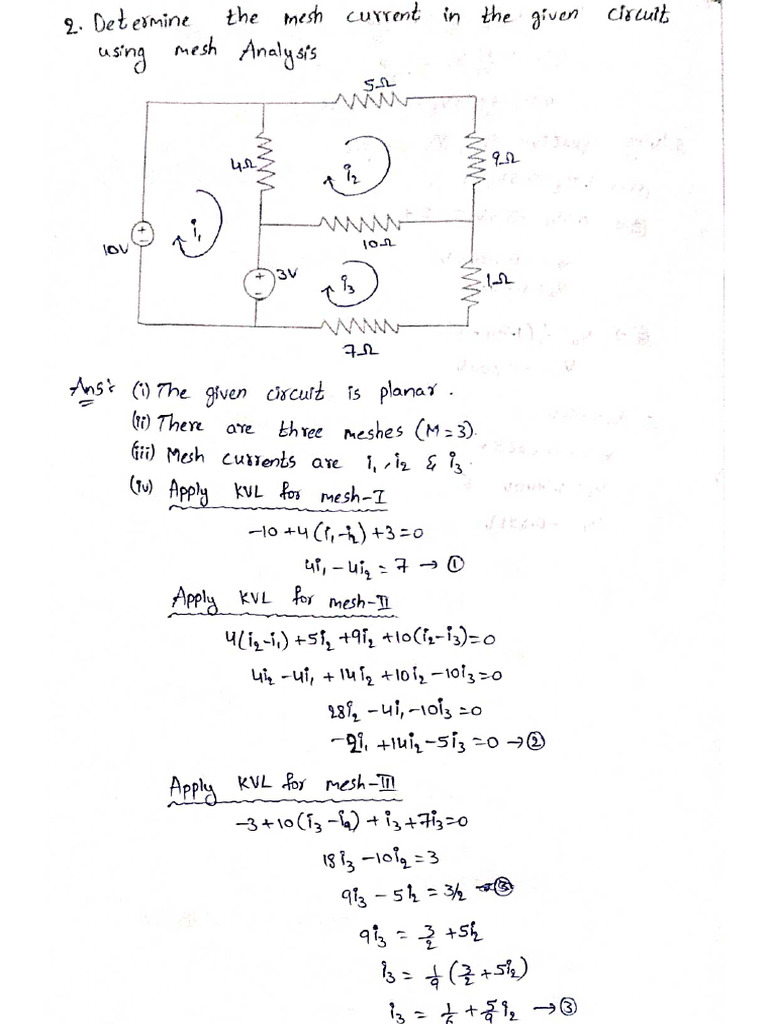 2. Determine the mesh current in the given circuit
using mesh Analysis
5Ω
4Ω
i2
9Ω
i1
10V
10Ω
3V
i3
1Ω
7Ω
Ans: (i) The given circuit is planar.
(ii) There are three meshes (M=3).
(iii) Mesh currents are i1, i2 & i3.
(iv) Apply KVL for mesh-I
-10+4(i1-i2)+3=0
4i1-4i2=7→①
Apply KVL for mesh-II
4(i2-i1)+5i2+9i2+10(i2-i3)=0
4i2-4i1+14i2+10i2-10i3=0
28i2-4i1-10i3=0
-2i1+14i2-5i3=0→②
Apply KVL for mesh-III
-3+10(i3-i2)+i3+7i3=0
18i3-10i2=3
9i3-5i2=3/2
9i3=3/2+5i2
i3=1/9(3/2+5i2)
i3=1/6+5/9i2→③